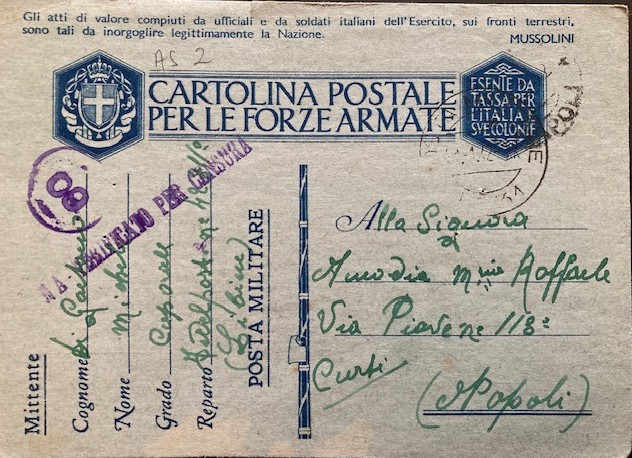 Gli atti di valore compiuti da ufficiali e da soldati italiani dell'Esercito, sui fronti terrestri,
sono tali da inorgoglire legittimamente la Nazione.
MUSSOLINI
AS 2
CARTOLINA POSTALE
PER LE FORZE ARMATE
ESENTE DA
TASSA PER
L'ITALIA E
SVE COLONIE
80
PER CENSURA
Mittente
Cognome
Nome Michele
Grado Caporale
Reparto
(Libia)
POSTA MILITARE
Alla Signora
Raffaele
Via Piave nº 118
Curti
(Napoli)